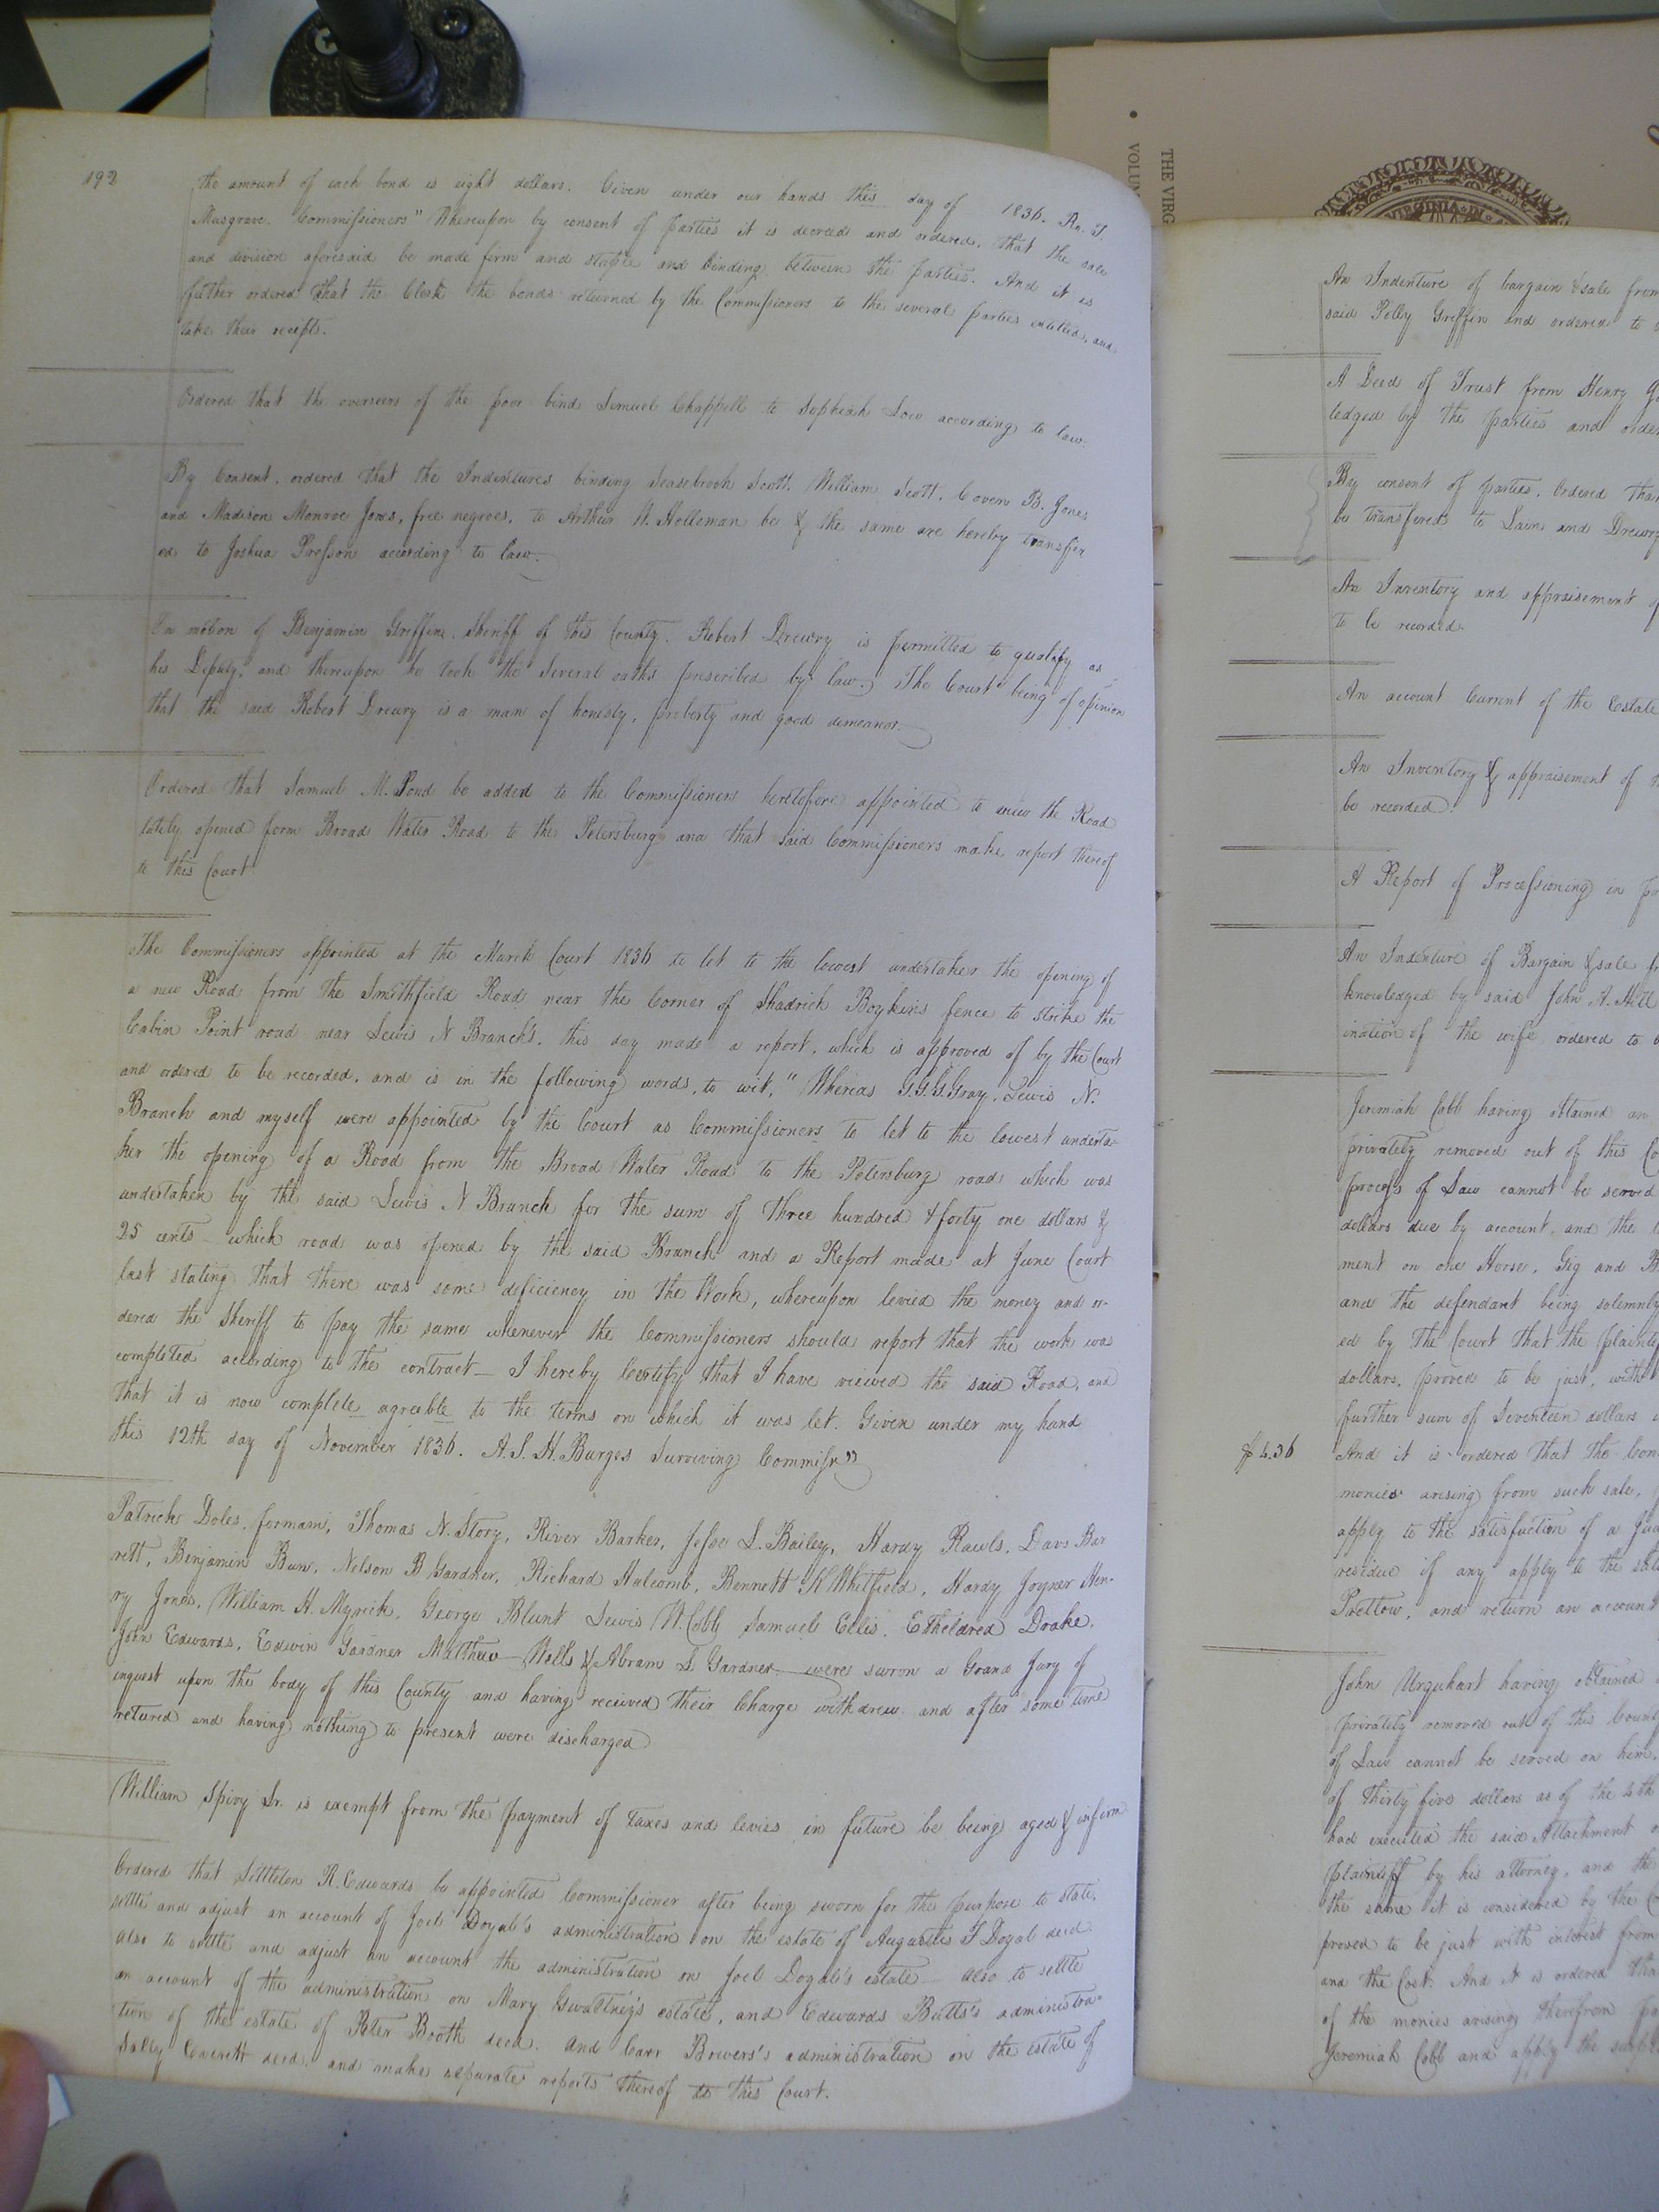 192
the amount of each bond is eight dollars. Given under our hands this day of 1836. Rn. T.
Musgrave. Commissioners" Whereupon by consent of parties it is decreed and ordered, that the sale
and division aforesaid be made firm and stable and binding between the parties. And it is
futher ordered that the Clerk the bonds returned by the Commissioners to the several parties entitled, and
take their reciepts.
Ordered that the overseers of the poor bind Lemuel Chappell to Sophiah Low according to law.
By Consent, ordered that the Indentures binding Seasebrook Scott, William Scott, Coven B. Jones
and Madison Monroe Jones, free negroes, to Arthur W. Holleman be & the same are hereby transfer
ed to Joshua Presson according to law.
On motion of Benjamin Griffin, Sheriff of this County, Robert Drewry is permitted to qualify as
his Deputy, and thereupon he took the several oaths prescribed by law. The Court being of opinion
that the said Robert Drewry is a man of honesty, proberty and good demeanor.
Ordered that Samuel M. Poud be added to the Commissioners heretofore appointed to view the Road
lately opened form Broad Water Road to the Petersburg and that said Commissioners make report thereof
to this Court
The Commissioners appointed at the March Court 1836 to let to the lowest undertaker the opening of
a new Road from the Smithfield Road near the Corner of Shadrick Boykins fence to strike the
Cabin Point road near Lewis N Branch's, this day made a report, which is approved of by the Court
and ordered to be recorded, and is in the following words, to wit, "Whereas G.G.G. Gray, Lewis N.
Branch and myself were appointed by the Court as Commissioners to let to the lowest underta-
ker the opening of a Road from the Broad Water Road to the Petersburg road which was
undertaken by the said Lewis N Branch for the sum of three hundred & forty one dollars &
25 cents which road was opened by the said Branch and a Report made at June Court
last stating that there was some deficiency in the Work, whereupon levied the money and or-
dered the Sheriff to pay the same whenever the Commissioners should report that the work was
completed according to the contract— I hereby Certify that I have viewed the said Road, and
that it is now complete agreeble to the terms on which it was let. Given under my hand
this 12th day of November 1836. A.S.H. Burges Surviving Commissr."
Patrick Doles, forman, Thomas N. Story, River Barker, Jesse L. Bailey, Hardy Rawls, Davs Bar
rett, Benjamin Bun, Nelson B Gardner, Richard Halcomb, Bennett K Whitfield, Hardy Joyner Hen-
ry Jones, William H. Myrick, George Blunt Lewis W. Cobb Samuel Ellis, Etheldred Drake,
John Edwards, Edwin Gardner Matthew Wells & Abram S. Gardner were sworn a Grand Jury of
inquest upon the body of this County and having received their Charge withdrew and after some time
retured and having nothing to present were discharged
William Spivy Sr. is exempt from the payment of taxes and levies in future he being aged & infirm
Ordered that Littleton R. Edwards be appointed Commissioner after being sworn for the purpose to state,
settle and adjust an account of Joel Doyal's administration on the estate of Augustus F Doyal decd
also to settle and adjust an account the administration on Joel Doyal's estate— Also to settle
an account of the administration on Mary Gwaltney's estate, and Edwards Butts's administra-
tion of the estate of Peter Booth decd. And Carr Bowers's administration on the estate of
Sally Everett decd. and make separate reports thereof to this Court.
THE VIRG
VOLUM
VIRGINIA
An Indenture of bargain & sale from
said Polly Griffin and ordered to
A Deed of Trust from Henry
ledged by the parties and order
By consent of parties, Ordered that
be transfered to Lain and Drewry
An Inventory and appraisement
to be recorded.
An account Current of the Estate
An Inventory & appraisement of
be recorded.
A Report of Processioning in
An Indenture of Bargain & sale
knowledged by said John A. Hill
ination of the wife ordered to
Jeremiah Cobb having obtained an
privately removed out of this
process of Law cannot be served
dollars due by account, and the
ment on one Horse, Gig and
and the defendant being solemnly
ed by the Court that the plaintiff
dollars, proved to be just, with
further sum of Seventeen dollars
$4.36
And it is ordered that the
monies arising from such sale,
apply to the satisfaction of a
residue if any apply to the
Pretlow, and return an account
John Urquhart having obtained
privately removed out of this County
of Law cannot be served on him,
of Thirty five dollars as of the 4th
had executed the said Attachment
plaintiff by his attorney, and the
the same it is considered by the
proved to be just with interest from
and the Cost. And it is ordered that
of the monies arising therefrom
Jeremiah Cobb and apply the